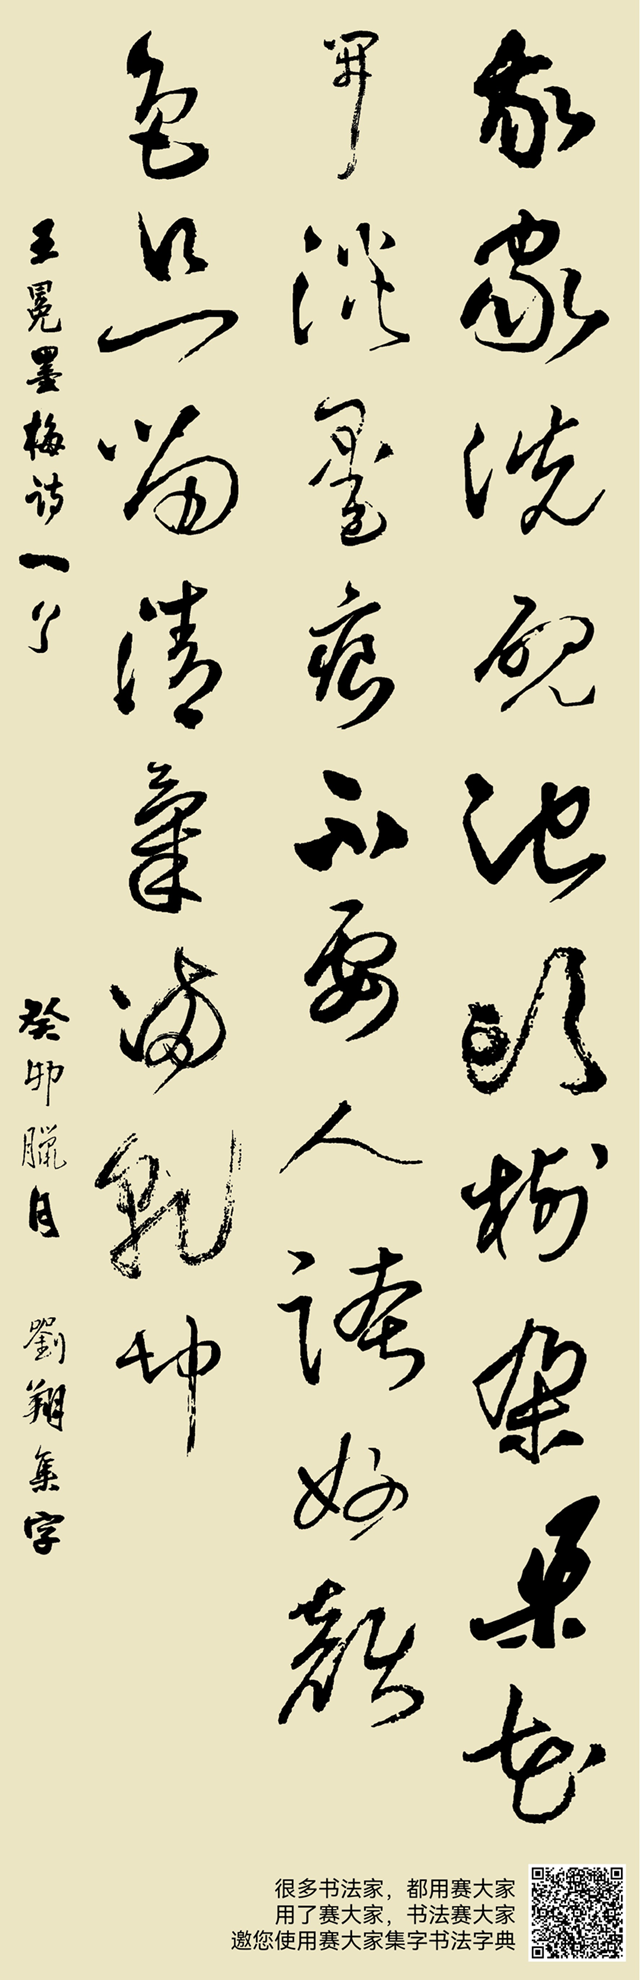 我家洗硯池頭樹朵朵花
開淡墨痕不要人誇好顏
色只留清氣滿乾坤
王冕墨梅詩一首 癸卯臘月 劉翔集字
很多书法家，都用赛大家
用了赛大家，书法赛大家
邀您使用赛大家集字书法字典